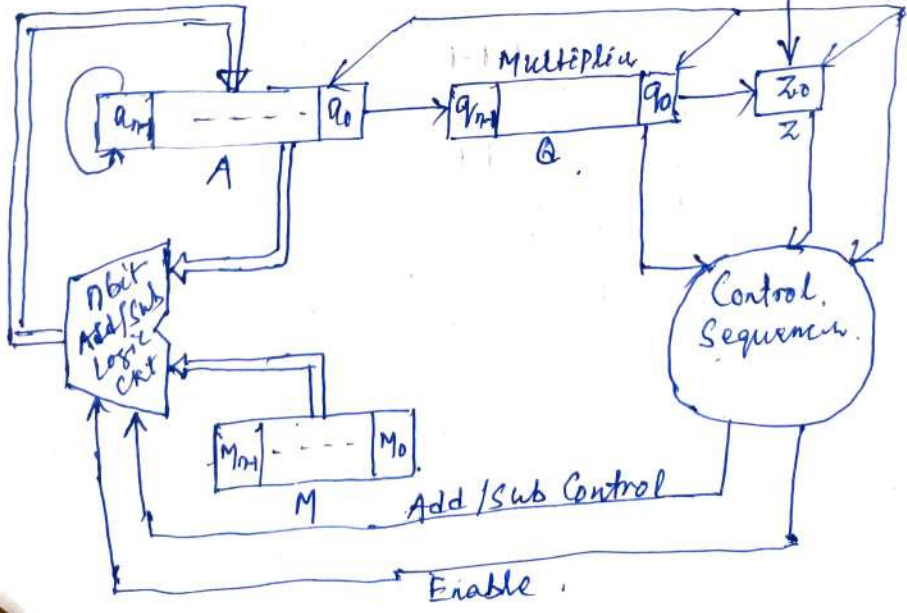 Multiplier
a n-1 - - - - a0
q n-1 q0
Z0
A
Q
Z
n bit
Add/Sub
Logic
Ckt
Control.
Sequencer
M n-1 - - - - M0
M
Add/Sub Control
Enable.